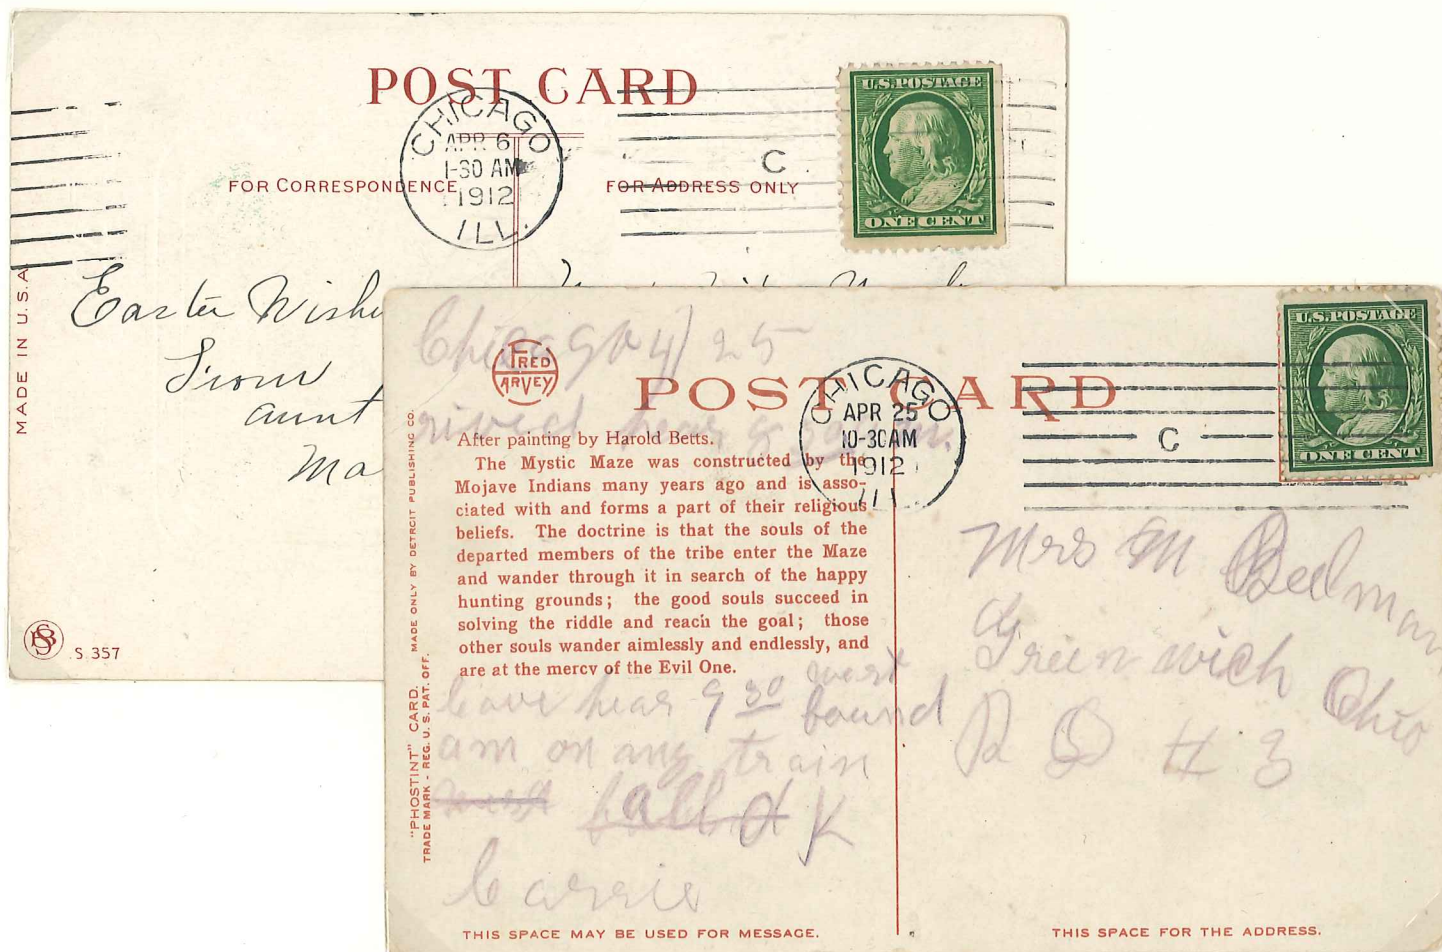 POST CARD
CHICAGO
APR 6
1-30 AM
1912
ILL.
C
U.S.POSTAGE
ONE CENT
FOR CORRESPONDENCE
FOR ADDRESS ONLY
MADE IN U.S.A.
Easter Wishe
From
aunt
Ma
SB
S. 357
Chicago 4/25
FRED
HARVEY
POST CARD
CHICAGO
APR 25
10-30AM
1912
ILL
C
U.S.POSTAGE
ONE CENT
rived hear
After painting by Harold Betts.
The Mystic Maze was constructed by the
Mojave Indians many years ago and is asso-
ciated with and forms a part of their religious
beliefs. The doctrine is that the souls of the
departed members of the tribe enter the Maze
and wander through it in search of the happy
hunting grounds; the good souls succeed in
solving the riddle and reach the goal; those
other souls wander aimlessly and endlessly, and
are at the mercy of the Evil One.
leave hear 9 30 west
bound
am on my train
K
Carrie
Mrs M Beelman
Greenwich Ohio
R D # 3
"PHOSTINT" CARD. MADE ONLY BY DETROIT PUBLISHING CO.
TRADE MARK - REG. U. S. PAT. OFF.
THIS SPACE MAY BE USED FOR MESSAGE.
THIS SPACE FOR THE ADDRESS.